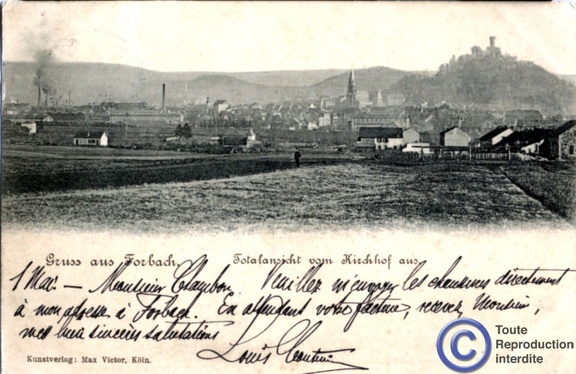 Gruss aus Forbach. Totalansicht vom Kirchhof aus.
1 Mai — Monsieur Chambon. Veuillez m'envoyer les chansons directement
à mon adresse à Forbach. En attendant votre facture, recevez, Monsieur,
mes bien sincères salutations
Louis
Kunstverlag: Max Victor, Köln.
©
Toute
Reproduction
interdite